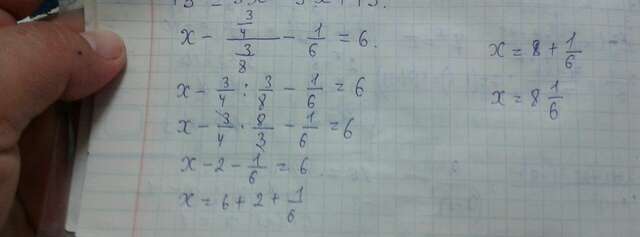 x - (3/4)/(3/8) - 1/6 = 6.
x - 3/4 : 3/8 - 1/6 = 6
x - 3/4 · 8/3 - 1/6 = 6
x - 2 - 1/6 = 6
x = 6 + 2 + 1/6
x = 8 + 1/6
x = 8 1/6